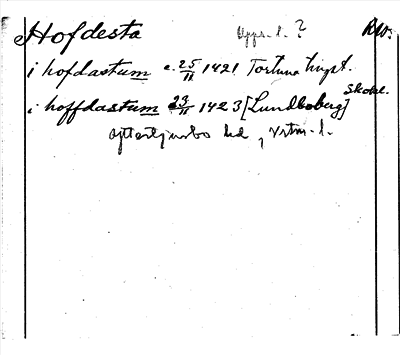 Hofdesta Upps. l. ? RW.
i hofdastum c. 25/11 1421 Tortuna tingst.
i hoffdastum 23/11 1423 [Lundboberg] Skokl.
Ytterstjurbo hd, Vstm. l.